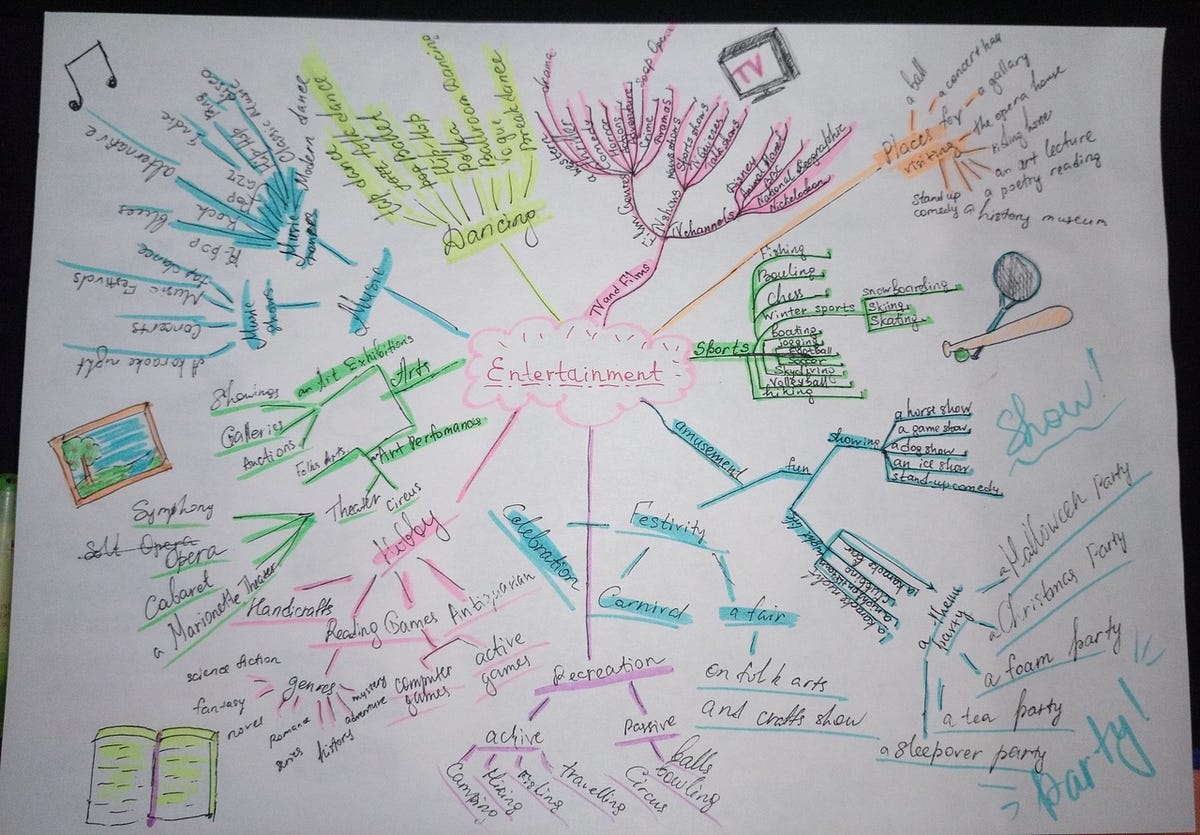 Entertainment
Music
Music
Modern dance
Classic music
disco
Rap
Hip Hop
Indie
Jazz
Pop
alternative
Rock
Blues
K-pop
Music
shows
tap dance
Music Festivals
Concerts
A karaoke night
Dancing
jazz
Ballet
Hip Hop
Polka
Ballroom Dancing
Vogue
Break dance
TV and Films
Film Genres
a western
a thriller
drama
Adventure
Crime
Soap Opera
News shows
Sports shows
TV series
Talk shows
TV channels
Disney
Animal Planet
BBC
National Geographic
Nickelodeon
TV
Places
for
visiting
a ball
a concert hall
a gallary
the opera house
riding horse
an art lecture
a poetry reading
Stand up
comedy
a history museum
Sports
Fishing
Bowling
Chess
Winter sports
snowboarding
Skiing
Skating
Boating
jogging
Football
Skydiving
Volleyball
hiking
Arts
an Art Exhibitions
Showings
Galleries
Auctions
Art Perfomances
Folks Arts
Circus
Theater
Symphony
Opera
Cabaret
a Marionette Theater
Hobby
Handicrafts
Reading
Games
Antiquarian
active
games
computer
games
genres
science fiction
fantasy
novel
Romance
series
history
adventure
mystery
Recreation
active
Camping
Hiking
travelling
Passive
balls
bowling
Circus
amusement
fun
showing
a horse show
a game show
a dog show
an ice show
stand-up comedy
Show!
Festivity
Celebration
Carnival
a fair
on folk arts
and crafts show
a theme
party
a Halloween Party
a Christmas Party
a foam party
a tea party
a sleepover party
Party!